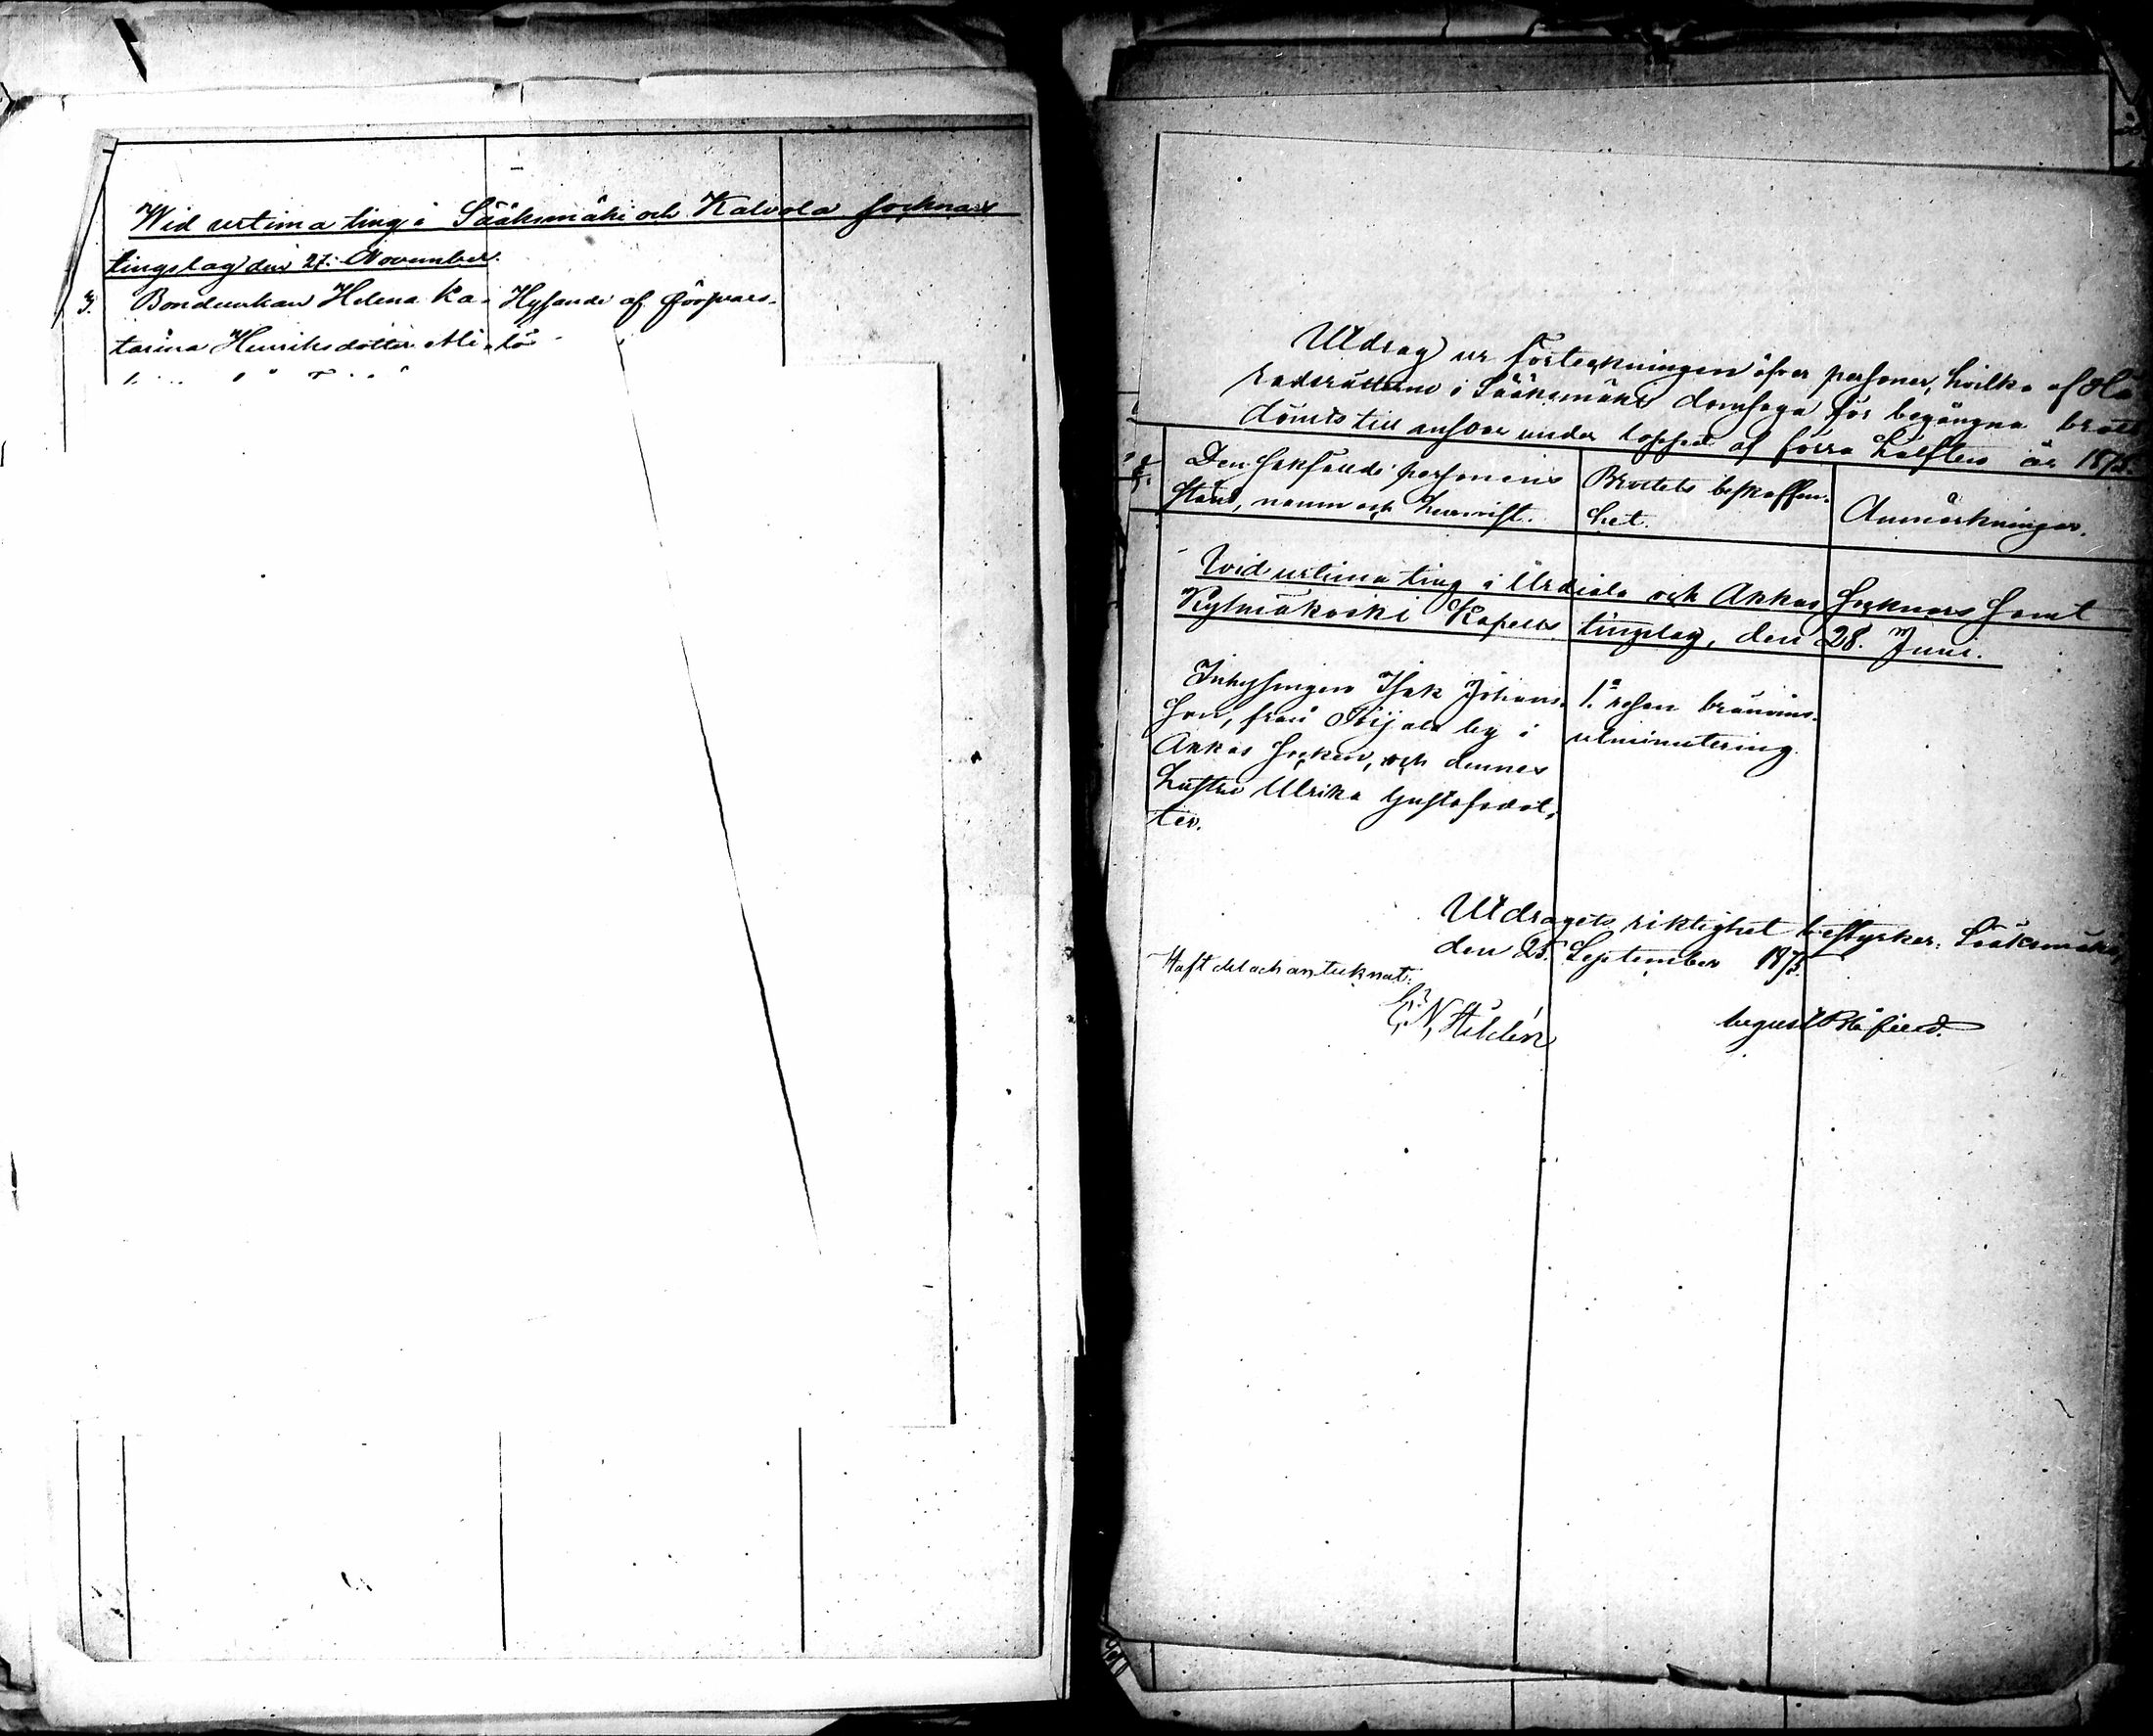 Wid urtima ting i Sääksmäki och Kalvola socknars
tingslag den 27. November.
3. Bondeenkan Helena Ka- Hysande af försvars-
tarina Henriksdotter Mi- lös
Utdrag ur förteckningen öfver personer, hvilka af Hä-
radsrätterne i Sääksmäki domsaga för begångna brott
dömts till ansvar under loppet af förra hälften år 1875.
Den sakfällde personens
stånd, namn och hemvist.
Brottets beskaffen-
het.
Anmärkningar.
Wid urtima ting i Urdiala och Akkas socknars samt
Kylmäkoski Kapells tingslag, den 28. Juni.
Inhysingen Isak Johans- 1:a resan bränvins-
son, från Toijala by i utminutering.
Akkas socken, och dennes
hustru Ulrika Gustafsdot-
ter.
Utdragets riktighet bestyrker: Sääksmäki,
den 25. September 1875.
Haft del och antecknat:
G. N. Heldén
August Råfeld.